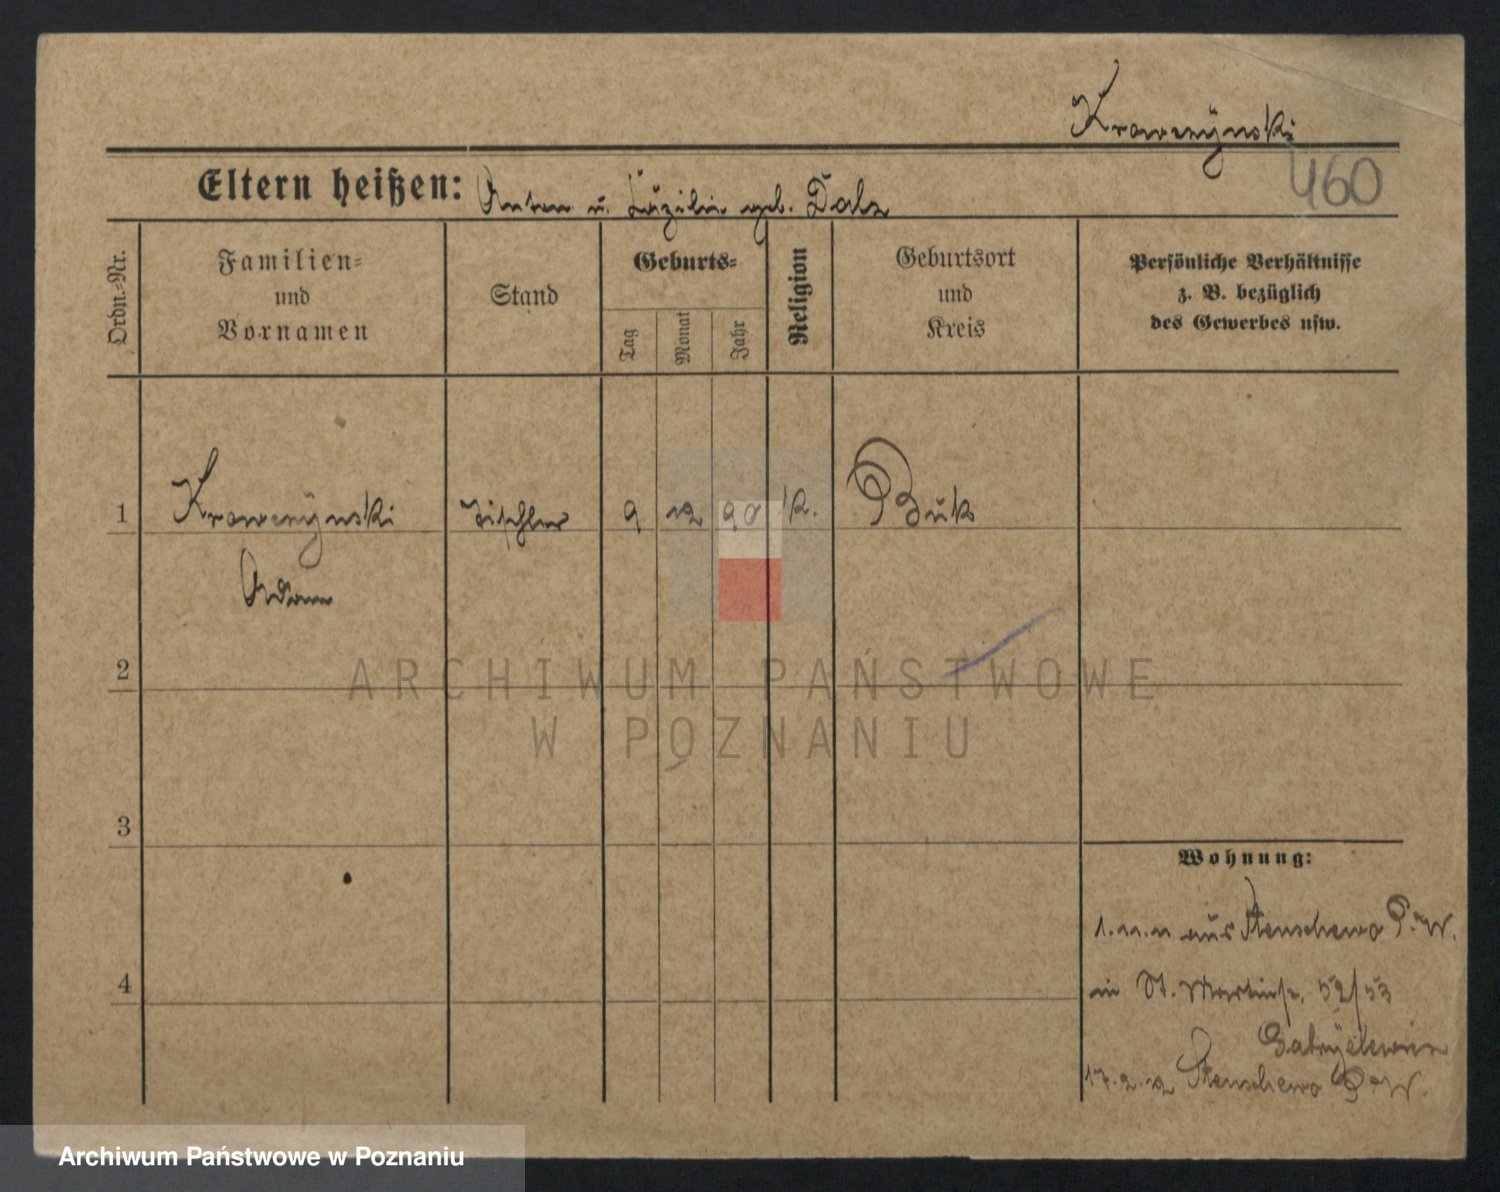 Krawczÿnski
460
Eltern heißen: Anton u. Cäzilie geb. Dalz
Ordn.-Nr.
Familien-
und
Vornamen
Stand
Geburts-
Tag
Monat
Jahr
Religion
Geburtsort
und
Kreis
Persönliche Verhältnisse
z. B. bezüglich
des Gewerbes usw.
1 Krawczÿnski Tischler 9 12 90 K. Buk
Adam
2
ARCHIWUM PAŃSTWOWE
W POZNANIU
3
Wohnung:
1.11.11 aus Stenschewo P.W.
4
in St. Martinstr. 52/53
17.2.12 Stenschewo P.W.
Archiwum Państwowe w Poznaniu